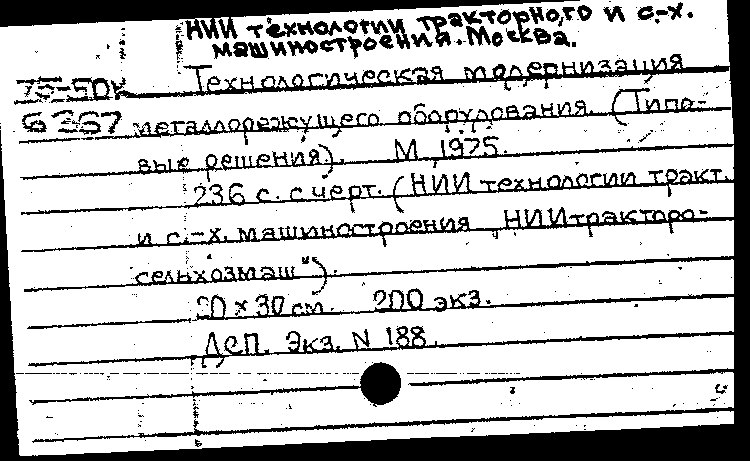 НИИ технологии тракторного и с.-х.
машиностроения. Москва.
75-50к Технологическая модернизация
6367 металлорежущего оборудования. (Типо-
вые решения). М, 1975.
236 с. с черт. (НИИ технологии тракт.
и с.-х. машиностроения „НИИтракторо-
сельхозмаш").
20 х 30 см. 200 экз.
ДСП. Экз. N 188.